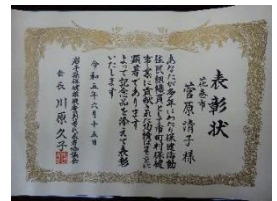 表彰状
花巻市
菅原清子様
あなたが多年にわたり保健活動
住民組織員として市町村保健
事業に貢献された功績はまことに
顕著であります
よって記念品を添えて表彰
いたします
令和五年六月十五日
会長 川原久子